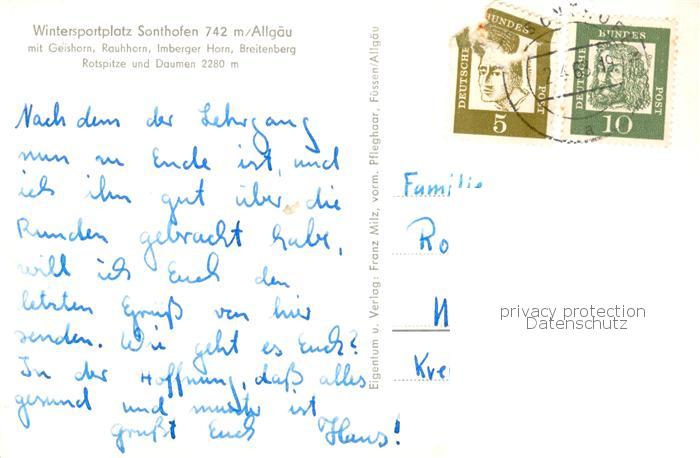 Wintersportplatz Sonthofen 742 m/Allgäu
mit Geishorn, Rauhhorn, Imberger Horn, Breitenberg
Rotspitze und Daumen 2280 m
Nach dem der Lehrgang
nun zu Ende ist, und
ich ihn gut über die
Runden gebracht habe,
will ich Euch den
letzten Gruß von hier
senden. Wie geht es Euch?
In der Hoffnung, daß alles
gesund und munter ist
grüßt Euch Hans!
Eigentum u. Verlag: Franz Milz, vorm. Pfleghaar, Füssen/Allgäu
DEUTSCHE
BUNDES
POST
5
DEUTSCHE
BUNDES
POST
10
Familie
Ro
Kre
privacy protection
Datenschutz